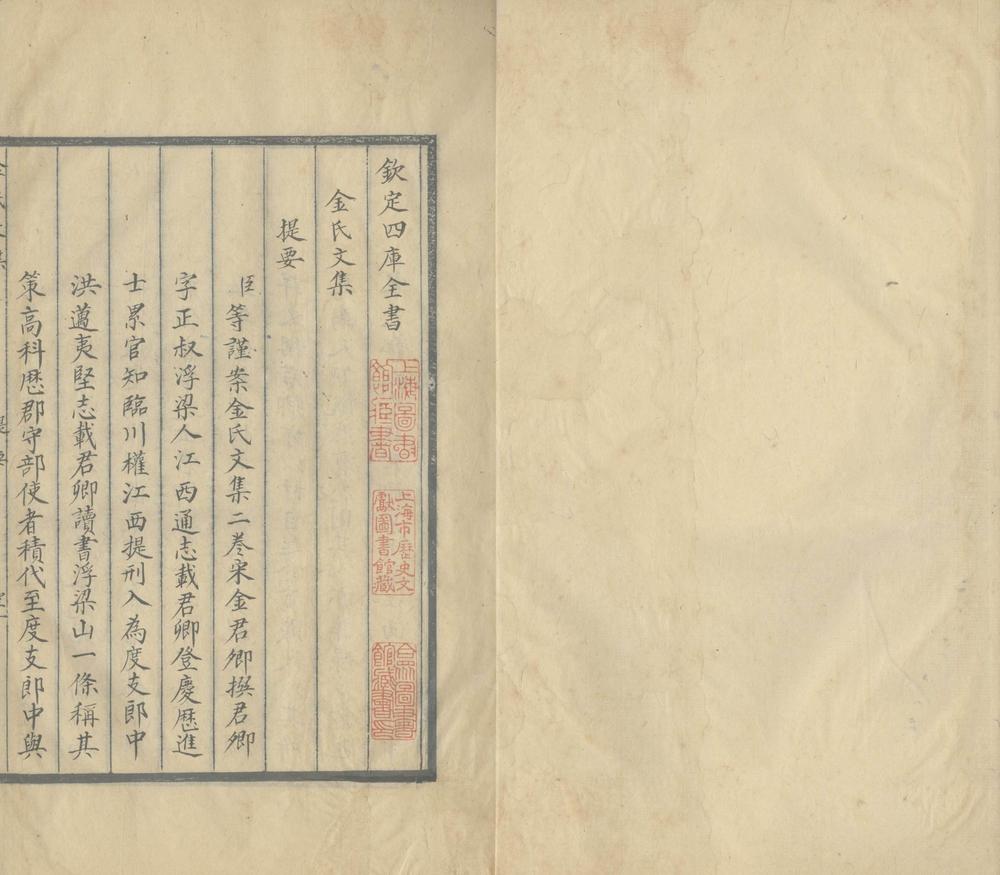 欽定四庫全書
金氏文集
提要
臣等謹案金氏文集二卷宋金君卿撰君卿
字正叔浮梁人江西通志載君卿登慶歷進
士累官知臨川權江西提刑入為度支郎中
洪邁夷堅志載君卿讀書浮梁山一條稱其
策高科歴郡守部使者積代至度支郎中與
上海圖書館臧書
上海市歷史文獻圖書館藏
合眾圖書館藏書印